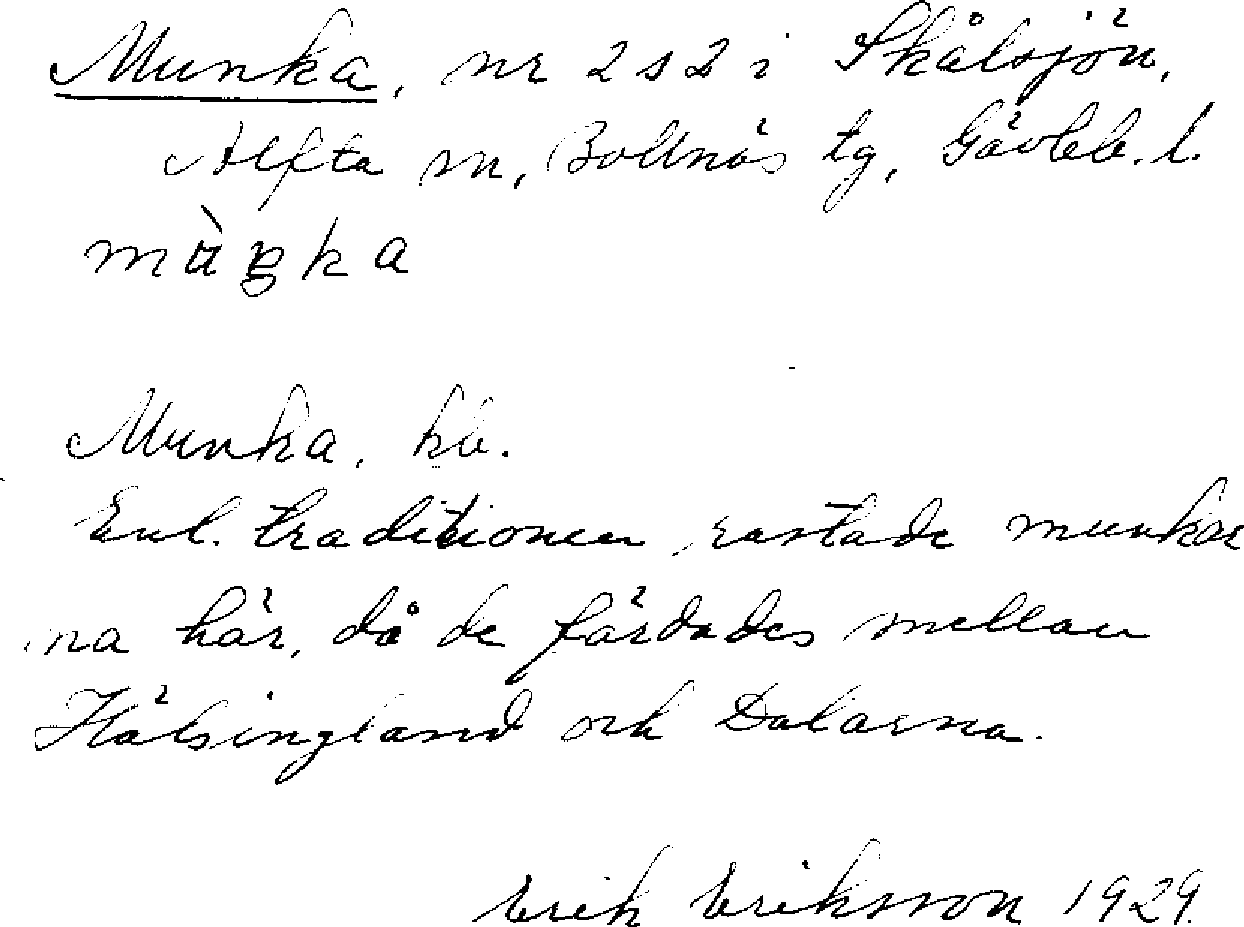 Munka, nr 2 s 2 i Skålsjön,
Alfta sn, Bollnäs tg, Gävleb. l.
Munka, kb.
Enl. traditionen rastade munkar
na här, då de färdades mellan
Hälsingland och Dalarna.
Erik Eriksson 1929.